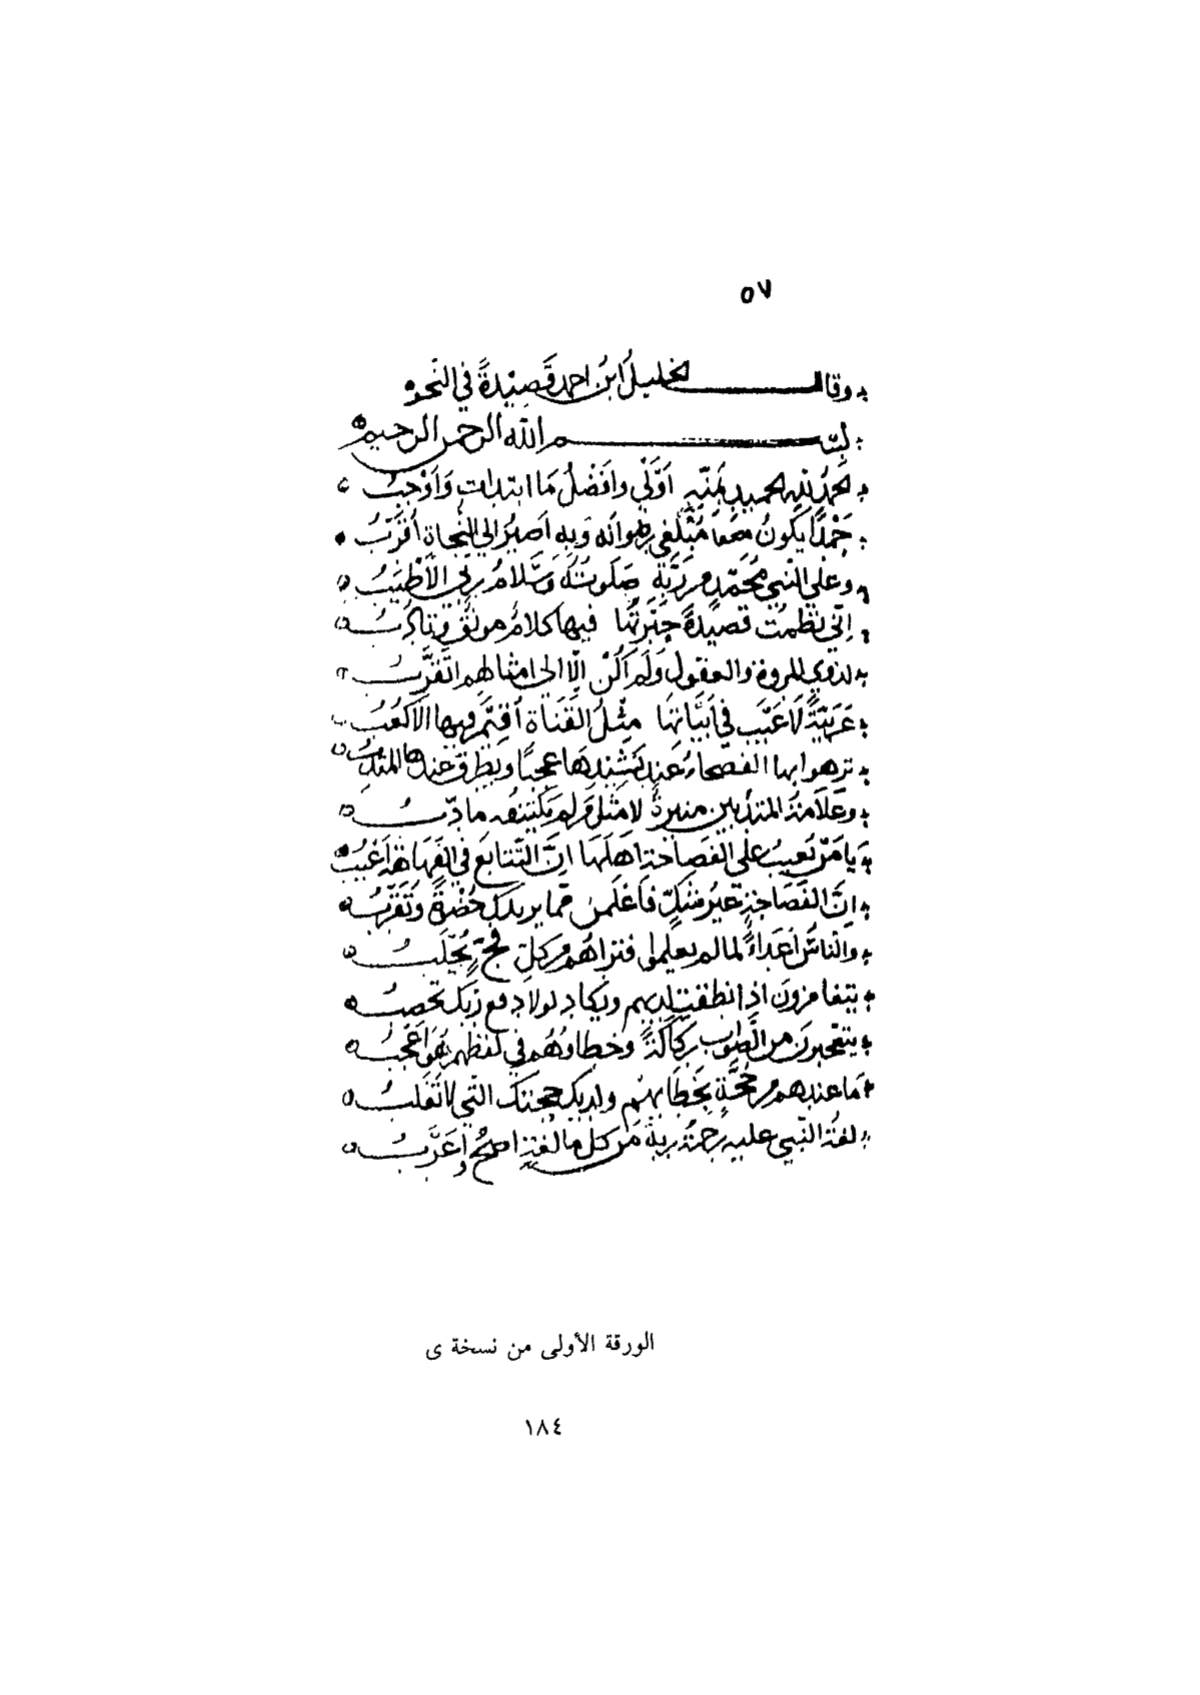 ٥٧
وقال الخليل ابن احمد قَصِيْدةً في النّحو
بسم الله الرحمن الرحيم
الحمدُ لله الحميد بمَنّهِ أَوَّلي وأَفْضَلُ مَا ابتدات وَأَوْجَبُ
حَمْدًا يكونُ مبلغي رضوانه وَبِهِ اَصيرُ الى النَّجاةِ أُقَرَّبُ
وعَلى النَّبي مُحَمَّدٍ من رَبِّهِ صَلَوتُهُ وَسَلامُ ربّي الأَطْيَبُ
اِنّي نظمتُ قصيدةً حَبّرتُها فيها كلامٌ مونقٌ وتأدُّبُ
لذوي المروة والعقول وَلَم اَكُنْ اِلّا الى امثالهم اتقَرَّبُ
عَرَبيّةً لَا عَيْبَ في اَبْيَاتِهَا مِثْلُ القَنَاةِ أُقيمَ فيها الأَكعُبُ
تزهوا بها الفصحاءُ عند نشيدهَا عجبًا ويطرق عندها المتادبُ
وعَلَامةُ المتأدّبين منيرةٌ لا مثل من لم يكتنفه مأدبُ
يا مَن يَعيبُ على الفَصَاحَةِ اهلَهَا اِنَّ التَّتابعَ في الفَهَاهَة أَعْيَبُ
اِنَّ الفَصَاحَةَ غيرُ شكٍّ فاَعْلَمن مما يزيدك حُضْوَةً وتُقَرِّبُ
والناسُ أعداءٌ لما لم يعلموا فتراهُم من كلِّ فجٍّ يُجْلَبُ
يتغامزون اذا نطقت لديهم ويكاد لولا دفع ربّك تحصبُ
يتعجبون من الصّوابِ ركاكةً وخطاؤُهُم في لفظهم هُوَ اَعْجَبُ
ما عندهم من حُجَّةٍ بخَطَائهم ولديك حجتك التّي لا تُغلبُ
لغة النَّبي عليه رحمةُ ربه من كل ما لغةٍ اصحُّ واَعرَبُ
الورقة الأولى من نسخة ى
١٨٤